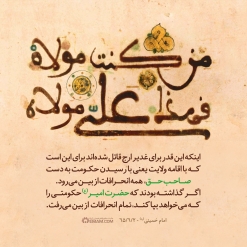 من كنت مولاه
فهذا علي مولاه
اینکه این قدر برای غدیر ارج قائل شده‌اند برای این است
که با اقامه ولایت یعنی با رسیدن حکومت به دست
صاحب حق، همه انحرافات از بین می‌رود.
اگر گذاشته بودند که حضرت امیر(ع) حکومتی را
که می‌خواهد بپا کند، تمام انحرافات از بین می‌رفت.
امام خمینی